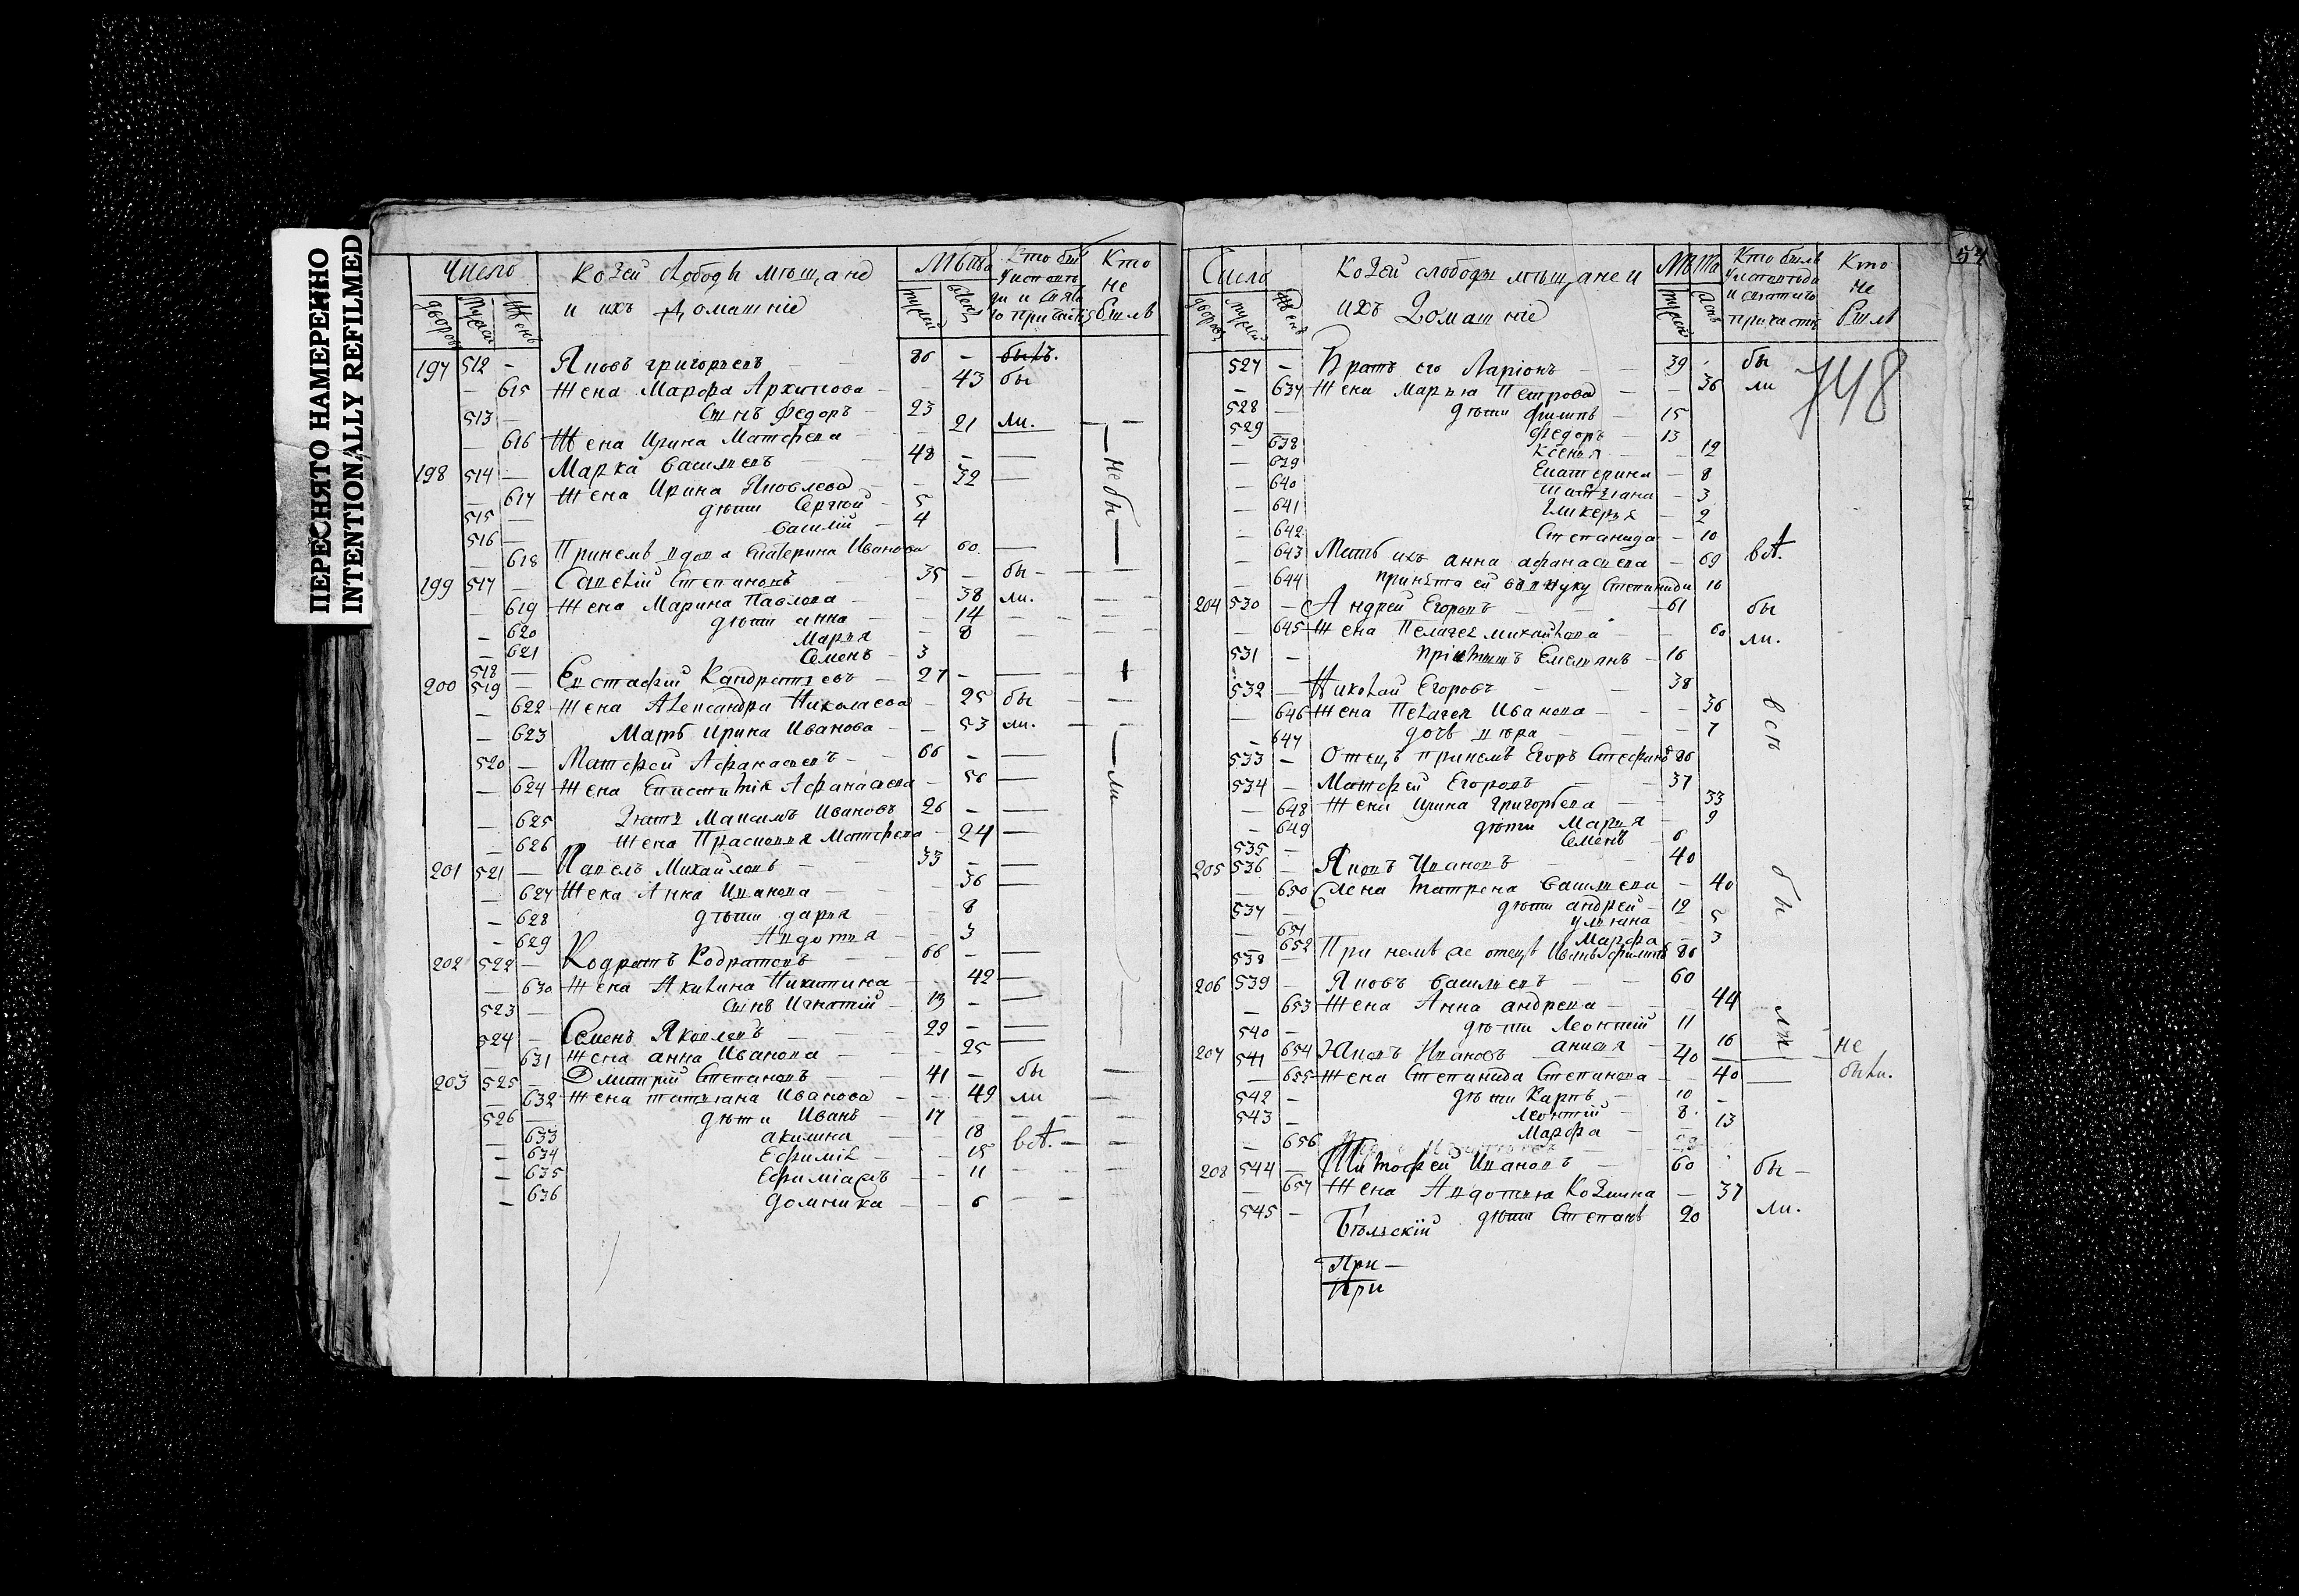 ПЕРЕСНЯТО НАМЕРЕННО
INTENTIONALLY REFILMED
Число
дворовъ
мужей
женъ
Козей слободы мѣщане
и ихъ домашніе
Лѣта
мужей
женъ
Кто былъ
у исповѣ
ди и свята
го причастія
Кто
не
былъ
197 512 — Яковъ григорьевъ — 86 — былъ.
— 615 Жена Марфа Архипова — 43 бы
513 — сынъ Федоръ — 23
— 616 Жена Ирина Матфеева — 21 ли.
198 514 — Марка василиевъ — 48 —
— 617 Жена Ирина Яковлева — 32 —
515 — дѣти Сергей — 5
516 — василий — 4
не бы
— 618 При немъ вдова Екатерина Иванова 60 —
199 517 — Савелий Степановъ — 35 — бы —
— 619 Жена Марина Павлова — 38 ли.
— 620 дѣти анна — 14 —
— 621 Мария — 8 —
518 — Семенъ — 3
200 519 — Евстафий Кандратиевъ — 27 —
— 622 Жена Александра Николаева — 25 бы —
— 623 Мать Ирина Иванова — 53 ли.
520 — Матфей Афанасиевъ — 66 —
— 624 Жена Епистимія Афанасиева — 56 —
ли
— 625 Зять Максимъ Ивановъ 26 —
— 626 Жена Прасковия Матфеева — 24 —
201 521 — Павелъ Михайловъ — 33 —
— 627 Жена Анна Иванова — 36 —
— 628 дѣти дария — 8
— 629 Авдотия — 3
202 522 — Кодратъ Кодратовъ — 66 —
— 630 Жена Акилина Никитина — 42 —
523 — сынъ Игнатий — 13 —
524 — Семенъ Яковлевъ — 29 —
— 631 Жена анна Иванова — 25
203 525 — Дмитрий Степановъ — 41 — бы
— 632 Жена татияна Иванова — 49 ли
526 — дѣти Иванъ — 17 —
— 633 акилина — 18 всѣ. —
— 634 Ефиміа — 15
— 635 — 11 —
— 636 домника — 6 —
57
Число
дворовъ
мужей
женъ
Козей слободы мѣщане и
ихъ домашніе
Лѣта
мужей
женъ
Кто былъ
у исповѣди
и святаго
причастія
Кто
не
былъ
748
527 — Братъ его Ларіонъ — 39 бы
— 637 Жена Марья Петрова — 36 ли
528 — дѣти филипъ — 15
529 — Федоръ — 13
— 638 Ксения — 12
— 639 Екатерина — 8
— 640 Татияна — 3
— 641 Гликерия — 2
— 642 Степанида — 10
— 643 Мать ихъ анна афанасиева — 69 всѣ.
— 644 Степаниди 16
204 530 — Андрей Егоровъ — 61 бы
— 645 Жена Пелагея михайлова — 60 ли.
531 — Емелянъ — 16
532 — Николай Егоровъ — 38
— 646 Жена Пелагея Иванова — 36
всѣ
— 647 дочь вѣра — 7
533 — Отецъ при немъ Егоръ 86
534 — Матфей Егоровъ — 37
— 648 Жена Ирина григорьева — 33
— 649 дѣти Мария — 9
535 — Семенъ — 6
205 536 — Яковъ Ивановъ — 40
— 650 Жена Матрена василиева — 40
бы
537 — дѣти андрей — 12
— 651 улияна — 5
— 652 Марфа — 3
538 — При немъ же отецъ Иванъ 86
206 539 — Яковъ василиевъ — 60
— 653 Жена Анна андреева — 44
540 — дѣти Леонтий — 11
ли
— 654 анисия — 16
207 541 — Яковъ Ивановъ — 40 — не
— 655 Жена Степанида Степанова — 40 — были.
542 — дѣти Карпъ — 10 —
543 — Леонтий — 8
— 656 Марфа — 13
208 544 — Тимофей Ивановъ — 60 бы —
— 657 Жена Авдотия Козмина — 37
545 — дѣти Степанъ 20 ли.
Бѣльскій
При —
При